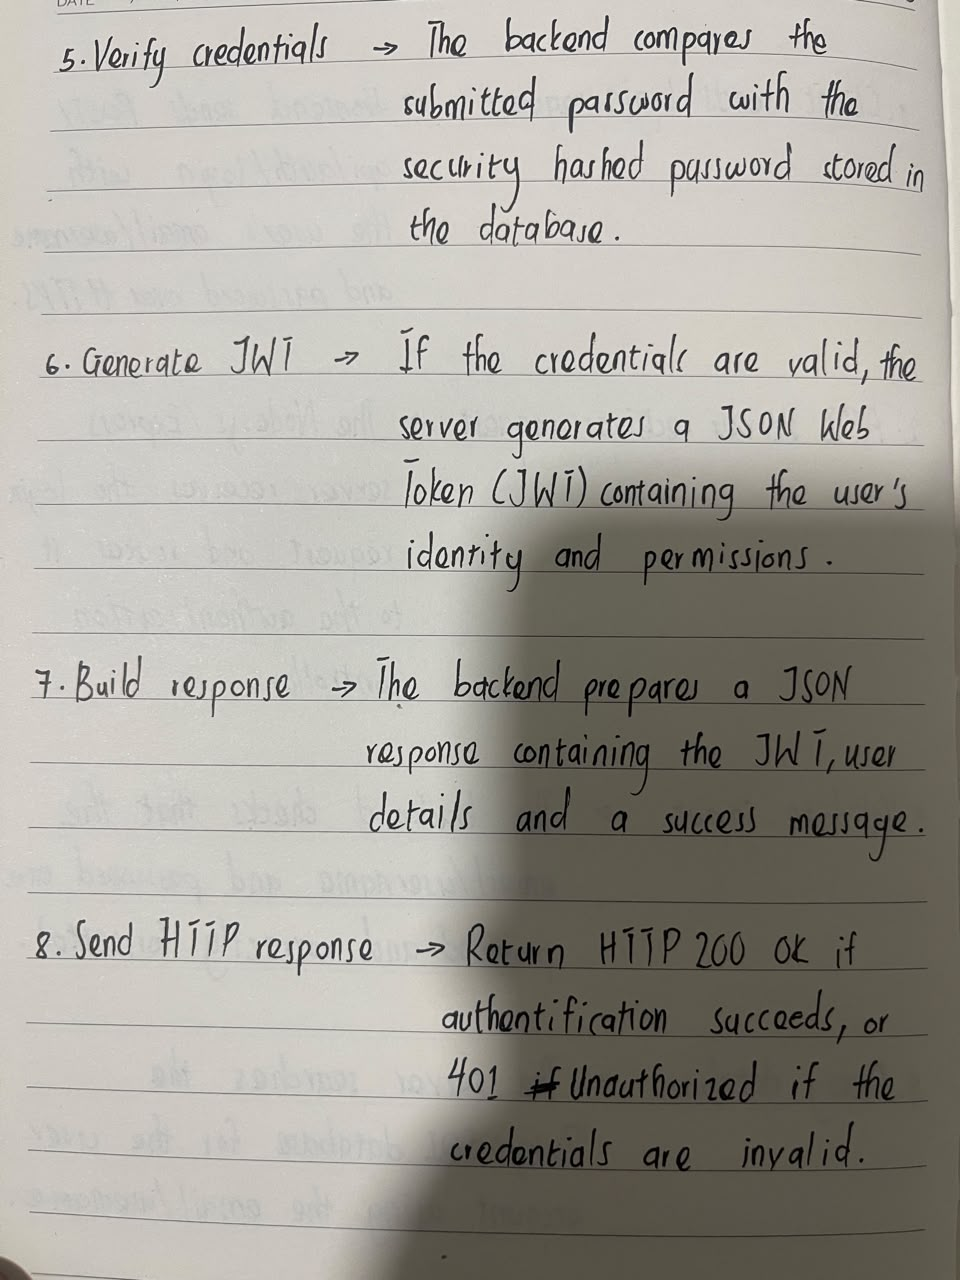 DATE
5. Verify credentials → The backend compares the
submitted password with the
security hashed password stored in
the database.
6. Generate JWT → If the credentials are valid, the
server generates a JSON Web
Token (JWT) containing the user's
identity and permissions.
7. Build response → The backend prepares a JSON
response containing the JWT, user
details and a success message.
8. Send HTTP response → Return HTTP 200 OK if
authentification succeeds, or
401 Unauthorized if the
credentials are invalid.